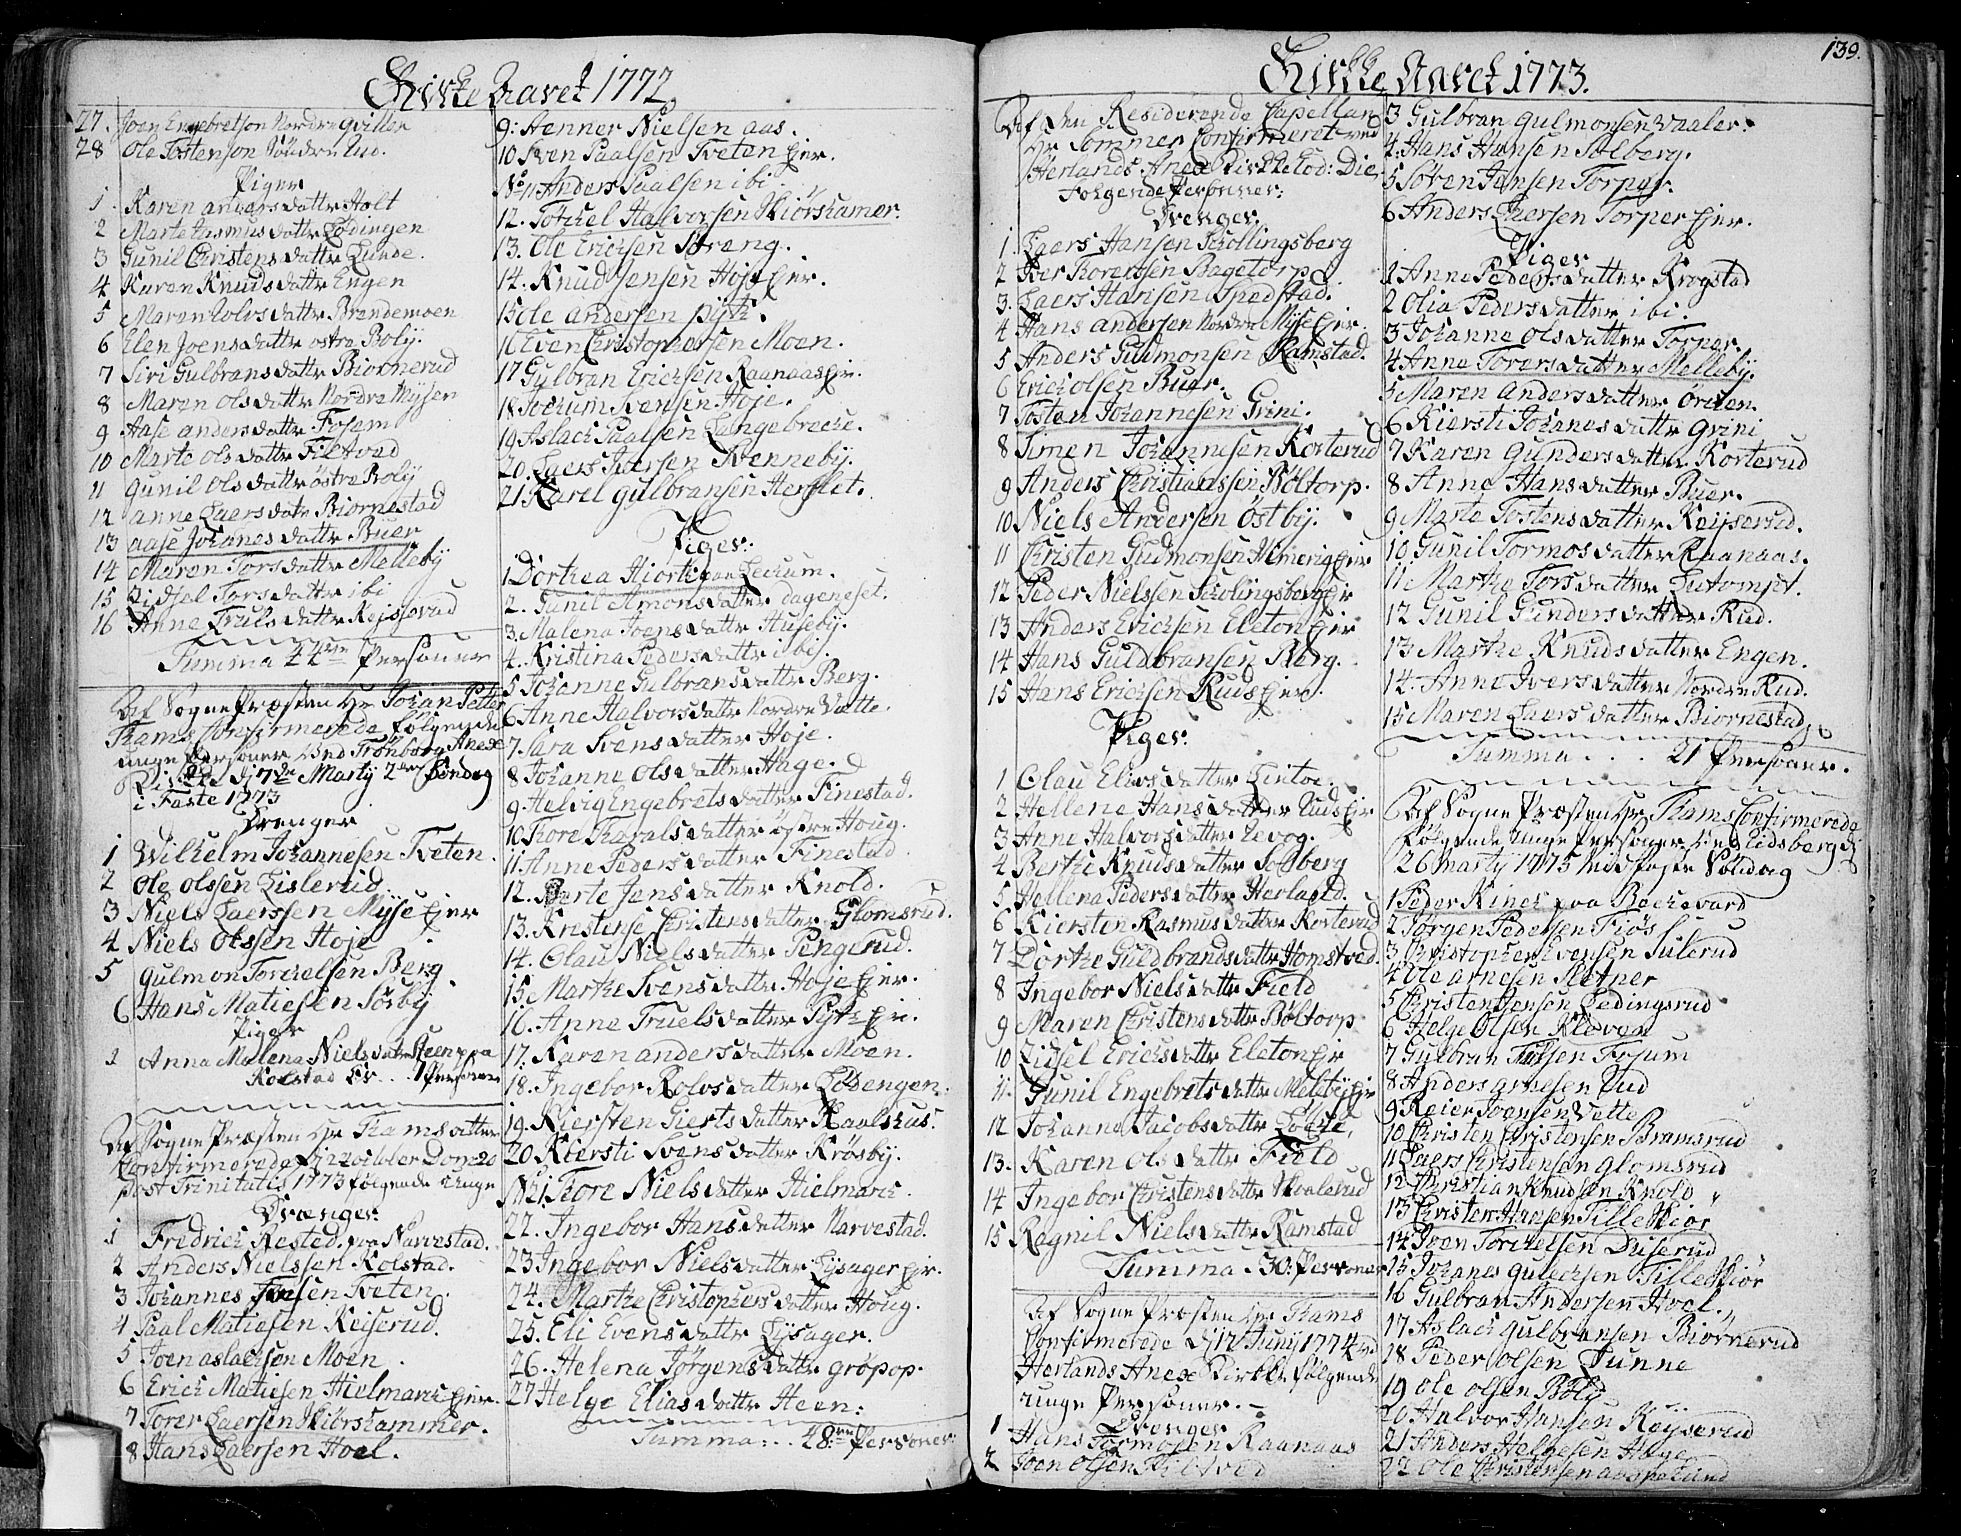 Kirke Aaret 1772.
27. Joen Engebretson Nordre
28 Ole Tostenson Søndre Rud.
Piger
1 Karen anders datter Holt
2 Marte Rasmus datter Lødingen
3 Gunil Christens datter Lunde.
4 Karen Knuds datter Engen
5 Maren Rolvs datter Brandemoen
6 Elen Joens datter østre Roly.
7 Siri Gulbrans datter Biørnerud
8 Maren ols datter Nordre Mysen
9 Aase anders datter Fosem
10 Marte ols datter
11 Gunil ols datter østre Roly
12 anne Laers datr Biørnestad
13 aase Johanes datter Buer
14 Maren Tors datter Melleby
15 Lidsel Tors datter ibi
16 Anne Truls datter
Summa 44 Personer
Af Sogne Præsten Hr Johan Petter
Rams Confirmerede følgende
unge Personer ved Trømborg Anexe
Kirke Dj 7de Martij 2den Søndag
i Faste 1773
Drenger
1 Wilhelm Johannesen Tveten.
2 Ole olssen Lislerud
3 Niels Laerssen Mysse Ejer
4 Niels Olssen Hoje
5 Gulmon Torckelsen Berg
6 Hans Matiesen Sosby
Piger
1 Anna Malena Niels datter Heen paa
Kolstad Er . . . 7 Personer
Af Sogne Præsten Hr Rams atter
Confirmerede Dj 22 october Dom: 20
post Trinitatis 1773 følgende Unge
Drænger
1 Fredrich Rested paa Narvestad.
2 Anders Nielssen Kolstad.
3 Johannes Tveten.
4 Paal Matiesen Keiserud.
5 Joen aslacksen Moen.
6 Erich Matiesen Hielmarch Ejer.
7 Torer Laersen Skiørshammer.
8 Hans Laersen Hoel.
9: Aenner Nielsen aas.
10 Sven Paalsen Tveten Ejer.
No 11 Anders Paalsen ibi
12. Torkel Halvorsen Skiørshamer.
13. Ole Ericksen Streng.
14. Knud Jensen Hoje Ejer.
15 Ole andersen
16 Even Christophersen Moen.
17 Gulbran Ericksen Raanaas Ejr.
18. Jochum Svensen Hoje.
19. Aslach Paalsen Langebrecke.
20. Laers Iversen Svenneby.
21 Karel Gulbransen
Piger:
1 Dorthea Hjorth paa Leckum.
2. Gunil Amons datter
3. Malena Joens datter Huseby.
4. Kristina Peders datter ibi.
5 Johanne Gulbrans datter Berg.
6 Anne Halvors datter Nordre Vatte.
7. Sara Svens datter Hoje.
8 Johanne Ols datter Hage.
9 Helvig Engebrets datter Finestad.
10 Tore datter østre Houg.
11. Anne Peders datter Finestad
12. Berte Jens datter Knold.
13. Kristense Christens datter Glomsrud.
14. Olau Niels datter Pengerud.
15. Marthe Svens datter Hoje Ejer.
16. Anne Truels datter Ejr.
17. Karen anders datter Moen.
18. Ingebor Rolvs datter Løsengen.
19. Kiersten Gierts datter Kaalshus.
20 Kiersti Svens datter Krosby.
No 21. Tore Niels datter Hielmarch.
22. Ingebor Hans datter Narvestad.
23 Ingebor Niels datter Lysager Ejr.
24. Marthe Christophers datter Houg.
25. Eli Evens datter Lysager.
26. Helena Jørgens datter grøpop.
27 Helge Elias datter Heen:
Summa: . . 48 Personer
139.
Kirke Aaret 1773.
Af den Residerende Capellan
Hr Sommer Confirmeret ved
Herlands Anex Kirke Eod: Die
Følgende Personer:
Drenger.
1. Laers Hansen Skollingsberg
2 Iver Torersen Bagetorp
3. Laers Hansen Spedstad.
4 Hans andersen Nordre Myse Ejer.
5 Anders Gudmonsen Ramstad.
6 Erich olsen Buer.
7 Tosten Johannesen Grini.
8 Simen Johannesen Korterud
9 Anders Christiansen Bøltorp.
10 Niels Andersen østby.
11 Christen Gudmonsen Ejer
12 Peder Nielssen Skolingsberg Ejr
13 Anders Ericksen Eleton Ejer
14 Hans Guldbransen Berg.
15 Hans Ericksen Ruds Ejer.
Piger.
1 Olau Elias datter Lintoe.
2 Hellene Hans datter Ruds Ejr
3 Anne Halvors datter
4 Berthe Knuds datter Solberg
5 Hellena Peders datter Herland.
6 Kiersten Rasmus datter Korterud
7 Dorthe Guldbrands datter Homstved.
8 Ingebor Niels datter Field
9 Maren Christens datter Bøltorp
10 Lidsel Erichs datter Eleton Ejr
11. Gunil Engebrets datter Melby Ejr
12 Johanne Jacobs datter
13. Karen Ols datter Field
14 Ingebor Christens datter
15 Ragnil Niels datter Ramstad
Summa . 30: Personer
Af Sogne Præsten Hr Rams
Confirmerede Dj 12 Junij 1774 ved
Herlands Anex Kirke følgende
unge Personer. –
Drenger
1 Hans Tormosen Raanaas
2 Joen olsen
3 Gulbran Gulmonsen Vaaler.
4. Hans Hansen Solberg.
5 Søren Jensen Torper
6 Anders Iversen Torper Ejer.
Piger
1 Anne Peders datter Krogstad
2 Olia Peders datter ibi.
3 Johanne Ols datter Torper
4 Anne Torers datter Melleby.
5 Maren anders datter
6 Kiersti Johanes datter Grini
7 Karen Gunders datter Korterud
8 Anne Hans datter Buer.
9 Marte Tostens datter Keyserud.
10 Gunil Tormos datter Raanaas.
11 Marthe Tors datter
12 Gunil Gunders datter Rud.
13 Marthe Knuds datter Engen.
14. Anne Ivers datter Nordre Rud.
15 Maren Laers datter Biørnestad
Summa . . . 21 Personer.
Af Sogne Præsten Hr Rams Confirmerede
følgende Unge Personer ved Eidsberg dj
26 Martij 1775
1 Peder Kinch paa Beckevard
2 Jørgen Pedersen Fiøs
3. Christopher Evensen Sulerud
4 Ole arnesen Sletner
5 Christen Jensen Ledingsrud
6 Helge Olsen Kløven
7 Gulbran Fosum
8 Anders arnesen Rud
9 Reier Joensen Vatte
10 Christen Christensen Bramsrud
11 Laers Christensen Glomsrud
12 Christian Knudsen Knold
13 Christen Hansen Tilleskiør
14 Iven Torckelsen Duserud
15 Johanes Gulecksen Tilleskiør
16 Gulbran Andersen Hoel.
17 Aslach Gulbransen Biørnerud
18 Peder olsen Tunne
19 Ole olsen Roly
20 Halvor Hansen Keyserud
21 Anders Helgesen Hage
22 Ole Christensen